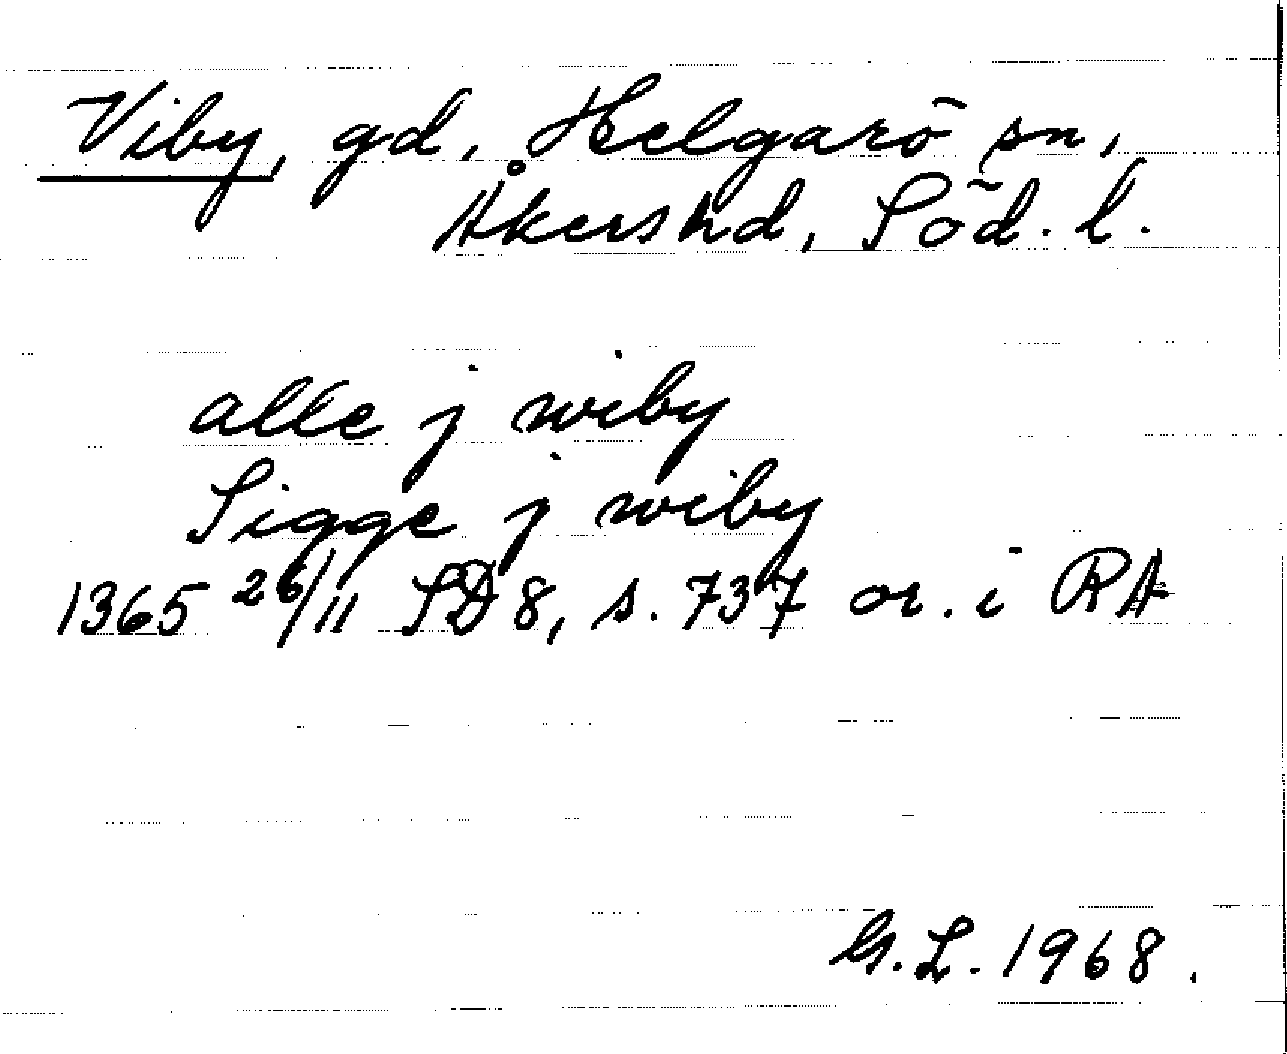 Viby, gd, Helgarö sn,
Åkers hd, Söd. l.
alle j wiby
Sigge j wiby
1365 26/11 SD 8, s. 737 or. i RA
G.L. 1968.